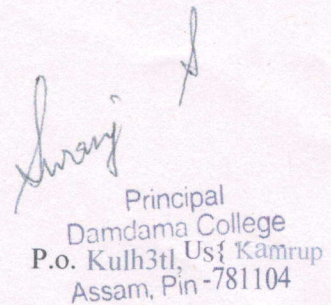 Principal
Damdama College
P.o. Kulh3tl, Us{ Kamrup
Assam, Pin -781104